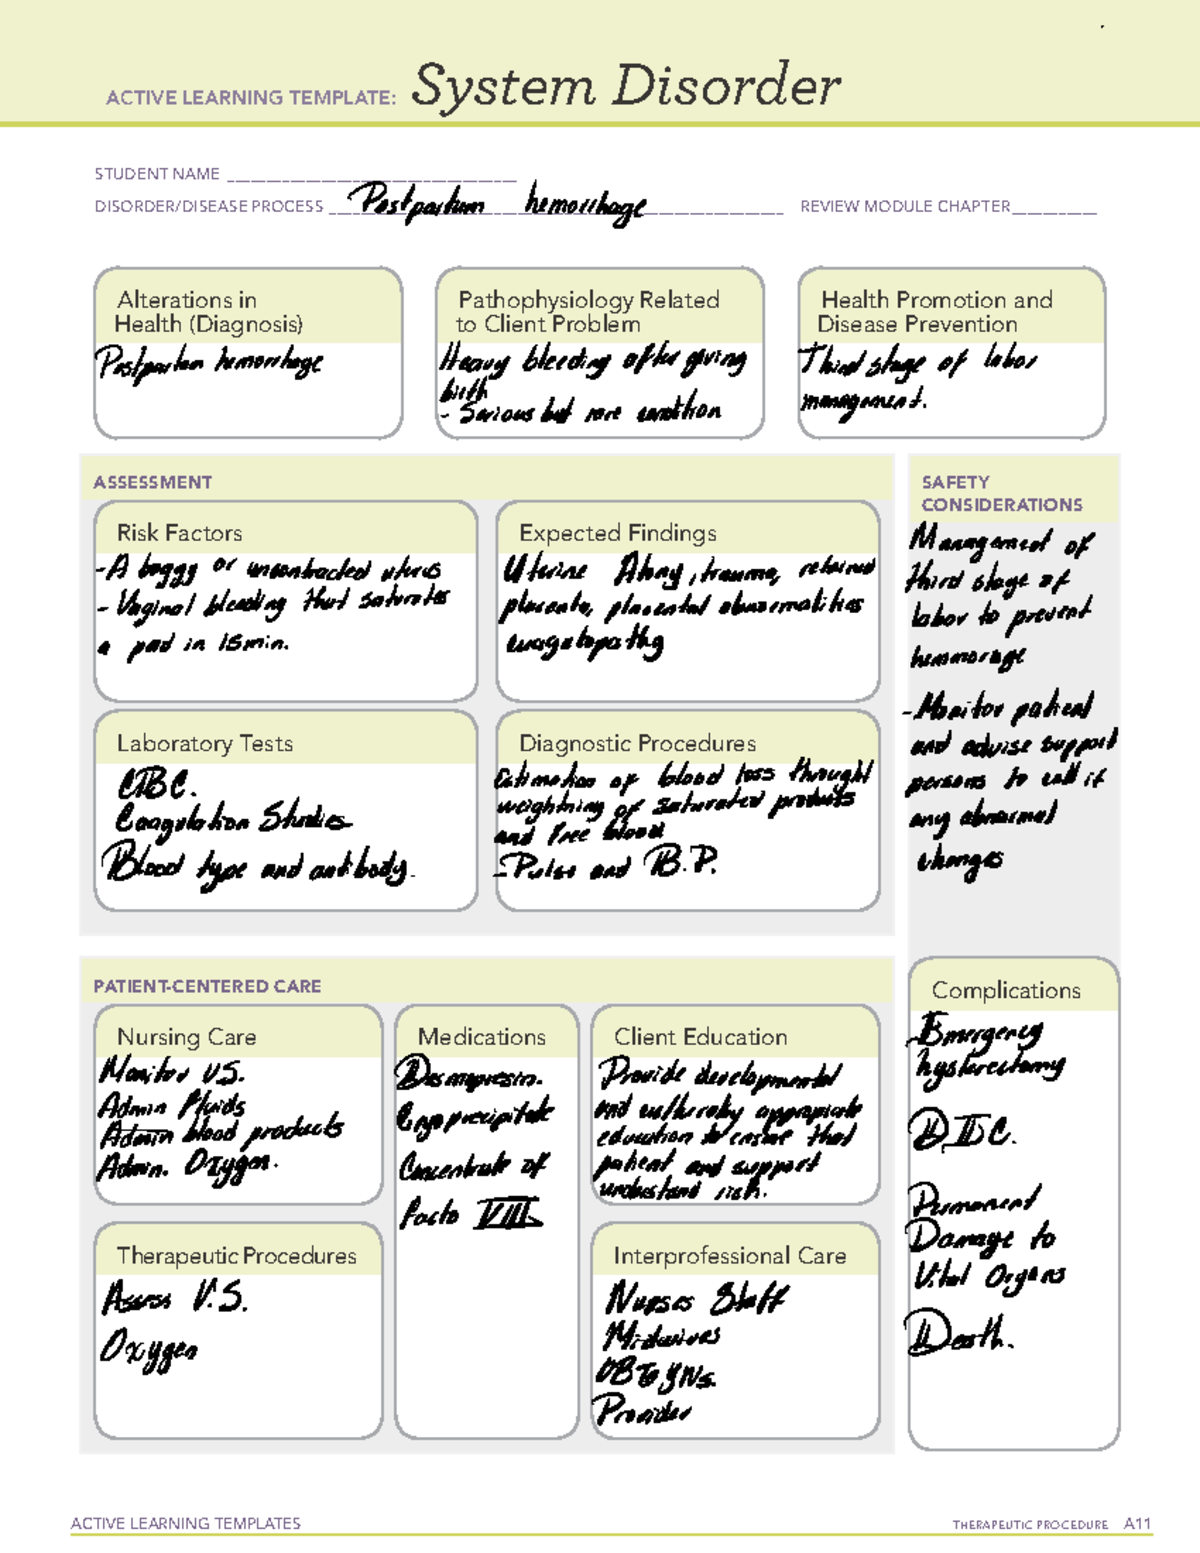 ACTIVE LEARNING TEMPLATE: System Disorder
STUDENT NAME
DISORDER/DISEASE PROCESS Postpartum hemorrhage REVIEW MODULE CHAPTER
Alterations in
Health (Diagnosis)
Postpartum hemorrhage
Pathophysiology Related
to Client Problem
Heavy bleeding after giving
birth
- Serious but rare condition
Health Promotion and
Disease Prevention
Third stage of labor
management.
ASSESSMENT
Risk Factors
-A boggy or uncontracted uterus
- Vaginal bleeding that saturates
a pad in 15min.
Expected Findings
Uterine Atony, trauma, retained
placenta, placental abnormalities
Laboratory Tests
CBC.
Coagulation Studies
Blood type and antibody.
Diagnostic Procedures
Estimation of blood loss throught
weightning of saturated products
and free blood
-Pulse and B.P.
SAFETY
CONSIDERATIONS
Management of
third stage of
labor to prevent
hemmorage
-Monitor patient
and advise support
persons to call if
any abnormal
changes
PATIENT-CENTERED CARE
Nursing Care
Monitor V.S.
Admin Fluids
Admin blood products
Admin. Oxygen.
Medications
Desmopresin.
Cryoprecipitate
Concentrate of
Facto VIII
Client Education
Provide developmental
and culturally appropriate
education to ensure that
patient and support
understand risk.
Therapeutic Procedures
Assess V.S.
Oxygen
Interprofessional Care
Nurses Staff
Midwives
OBGYNs.
Provider
Complications
-Emergency
hysterectomy
DIC.
Permanent
Damage to
Vital Organs
Death.
ACTIVE LEARNING TEMPLATES
THERAPEUTIC PROCEDURE A11